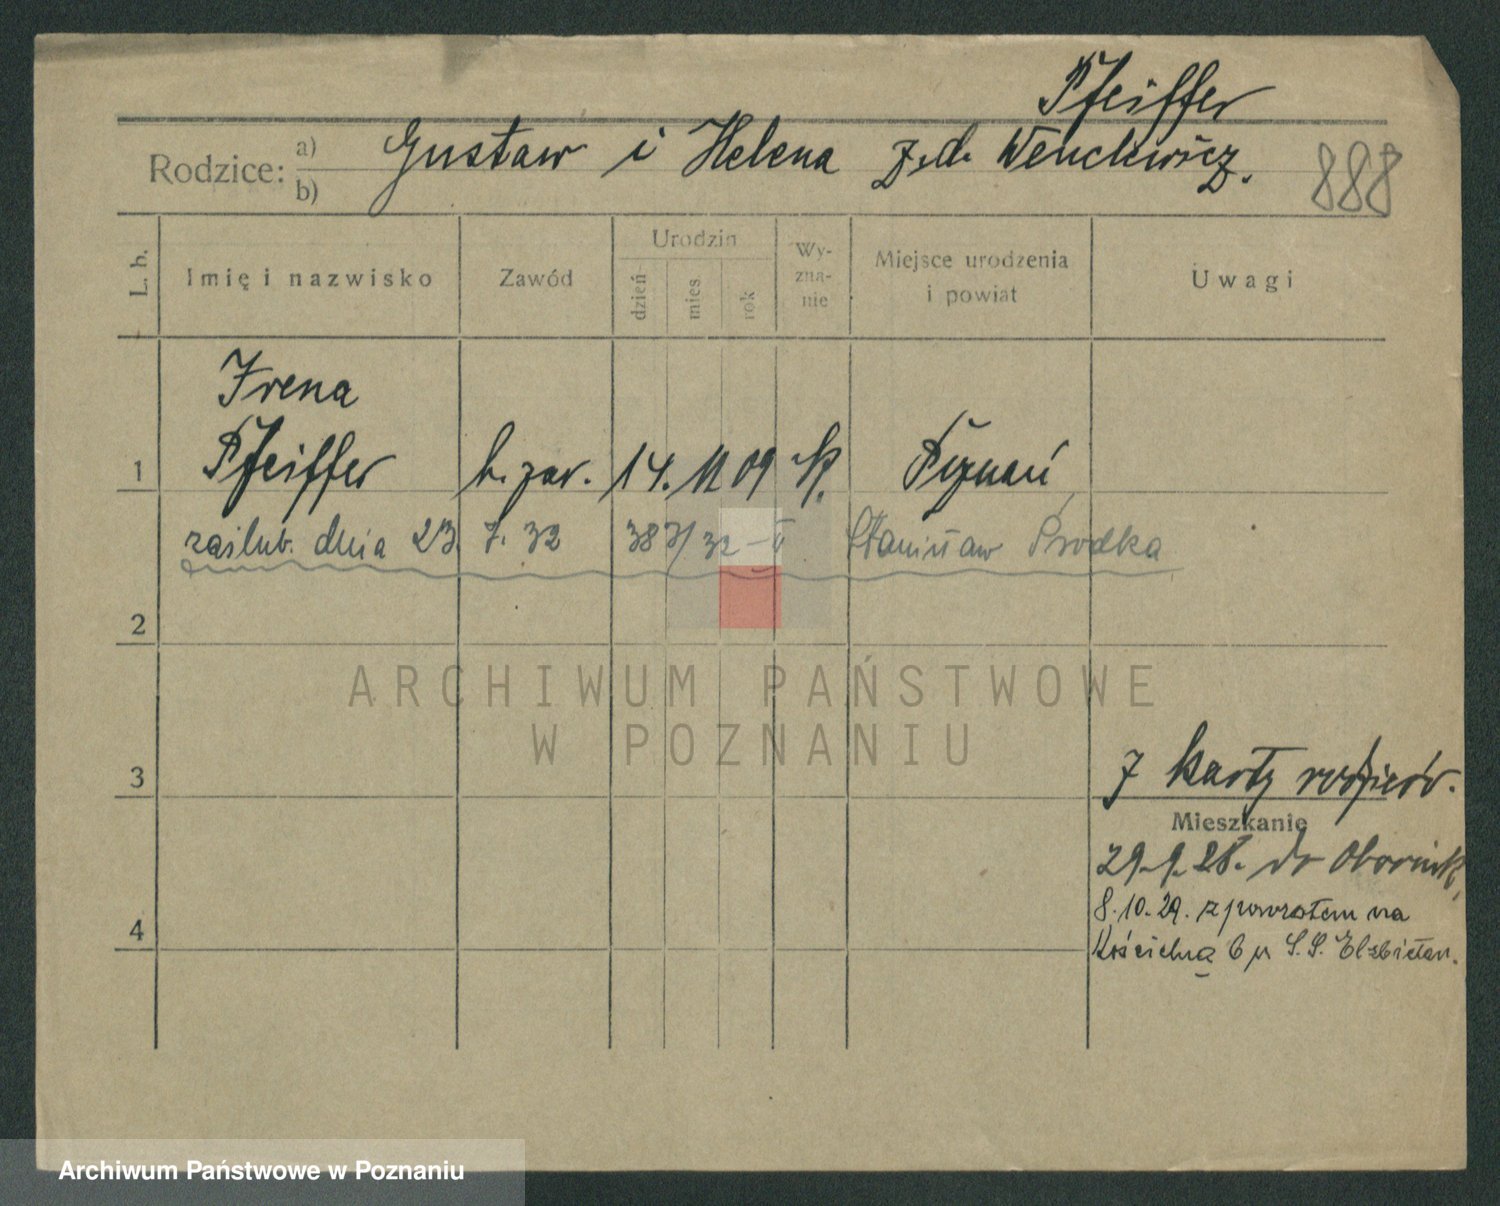 Pfeiffer
Rodzice: a) b) Gustaw i Helena z.d. Wenclewicz.
888
L. b.
Imię i nazwisko
Zawód
Urodzin
dzień
mies
rok
Wy-
zna-
nie
Miejsce urodzenia
i powiat
Uwagi
Irena
1 Pfeiffer b. zaw. 14. 11 09 Poznań
zaślub. dnia 23 7. 32 Stanisław Środka
2
ARCHIWUM PAŃSTWOWE
W POZNANIU
3
z karty rodziców.
Mieszkanie
29.9.28. do Obornik,
8.10.29. z powrotem na
4
Kościelną 6 u S.S. Elżbietan.
Archiwum Państwowe w Poznaniu